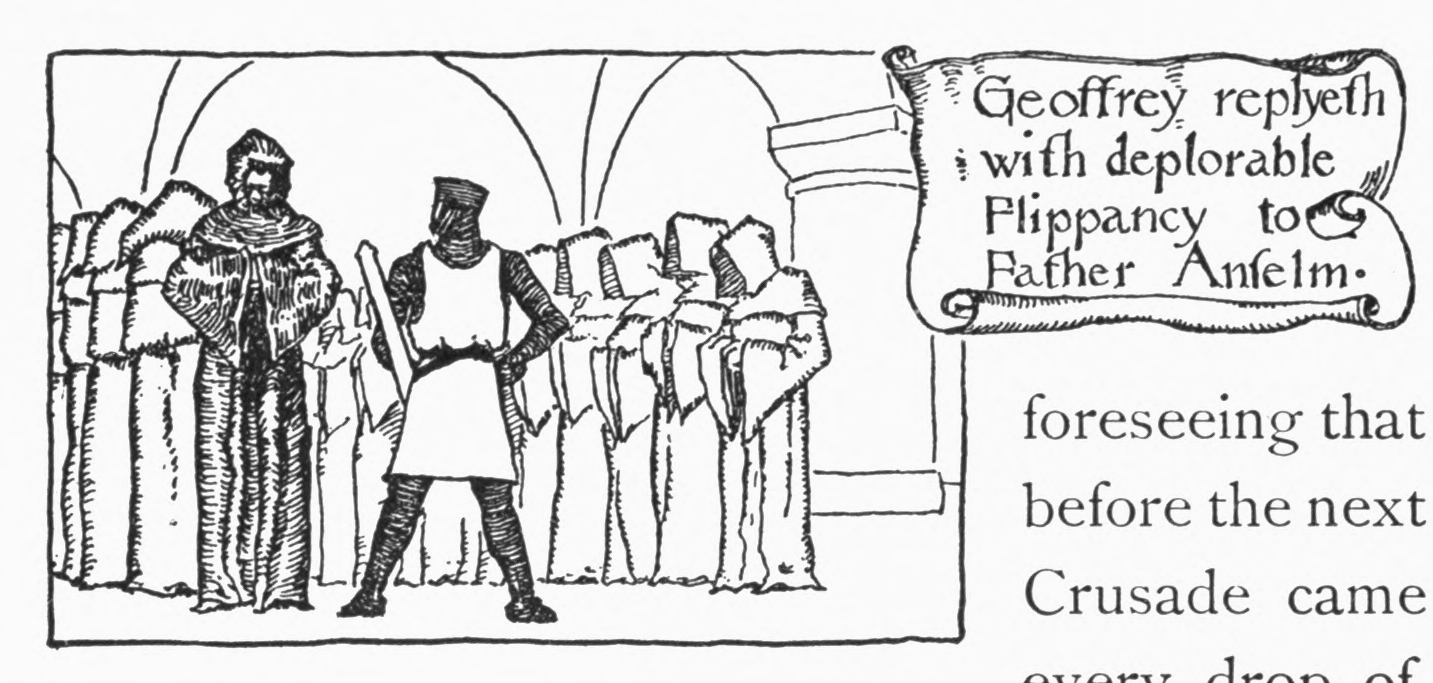 Geoffrey replyeth
with deplorable
Flippancy to
Father Anſelm.
foreseeing that
before the next
Crusade came
every drop of